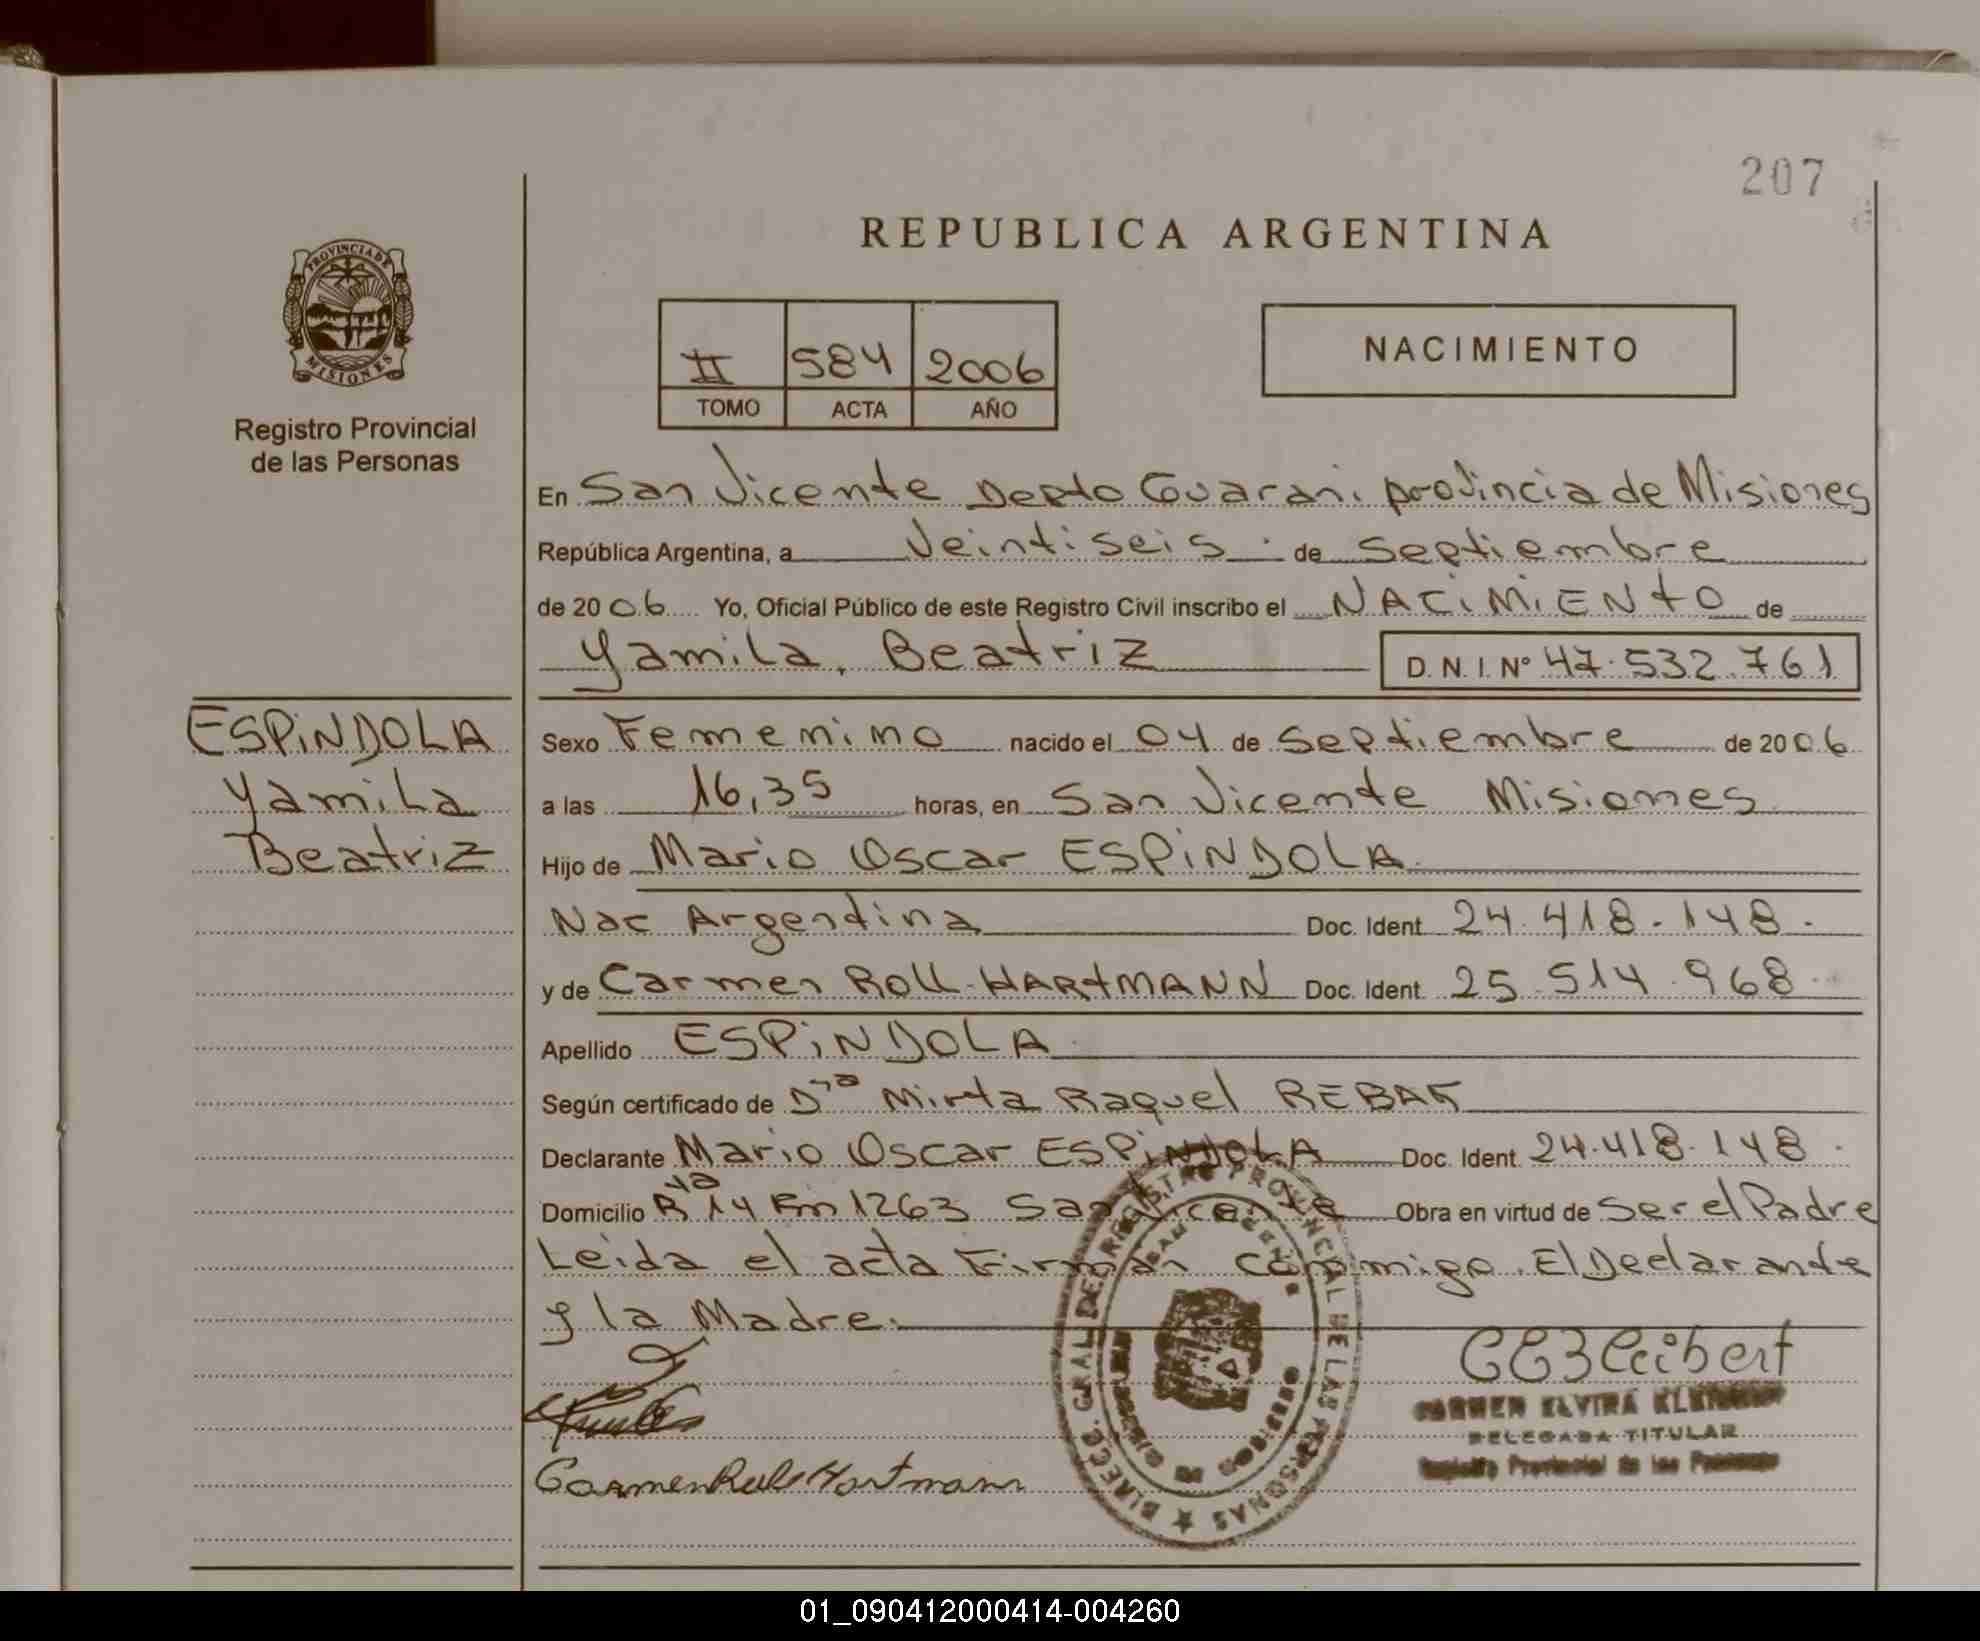 207
REPUBLICA ARGENTINA
PROVINCIA DE
MISIONES
Registro Provincial
de las Personas
II 584 2006
TOMO ACTA AÑO
NACIMIENTO
En San Vicente Depto Guarani provincia de Misiones
República Argentina, a Veintiseis de Septiembre
de 2006 Yo, Oficial Público de este Registro Civil inscribo el NACIMIENTO de
Yamila, Beatriz D. N. I. Nº 47.532.761
ESPINDOLA
Yamila
Beatriz
Sexo Femenino nacido el 04 de Septiembre de 2006
a las 16,35 horas, en San Vicente Misiones
Hijo de Mario Oscar ESPINDOLA
Nac Argentina Doc. Ident. 24.418.148.
y de Carmen ROLL-HARTMANN Doc. Ident. 25.514.968
Apellido ESPINDOLA
Según certificado de Dra Mirta Raquel REBAK
Declarante Mario Oscar ESPINDOLA Doc. Ident. 24.418.148.
Domicilio Rta 14 Km 1263 San Vicente Obra en virtud de Ser el Padre
Leida el acta Firman conmigo. El Declarante
y la Madre.
DIRECC. GRAL. DEL REGISTRO PROVINCIAL DE LAS PERSONAS
CARMEN ELVIRA
DELEGADA TITULAR
Registro Provincial de las Personas
Carmen Roll Hartmann
01_090412000414-004260